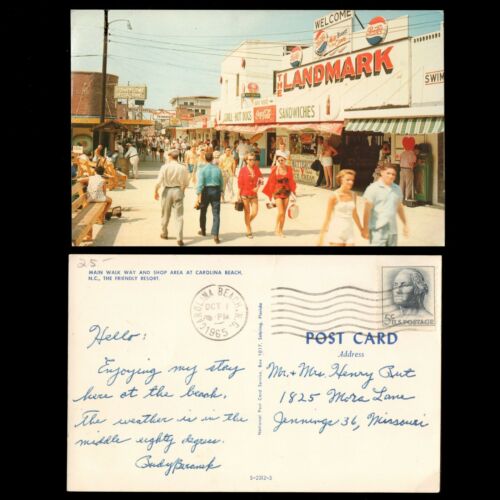 WELCOME
PEPSI
THE LANDMARK
GRILL · HOT DOGS
Coca-Cola
SANDWICHES
SWIM
25-
MAIN WALK WAY AND SHOP AREA AT CAROLINA BEACH,
N.C., THE FRIENDLY RESORT.
CAROLINA BEACH, N.C.
OCT 1
PM
1965
5¢ U.S. POSTAGE
POST CARD
Address
Hello:
Enjoying my stay
here at the beach.
The weather is in the
middle eighty degrees.
National Post Card Service, Box 1017, Sebring, Florida
Mr. & Mrs. Henry But
1825 Mora Lane
Jennings 36, Missouri
S-2312-3